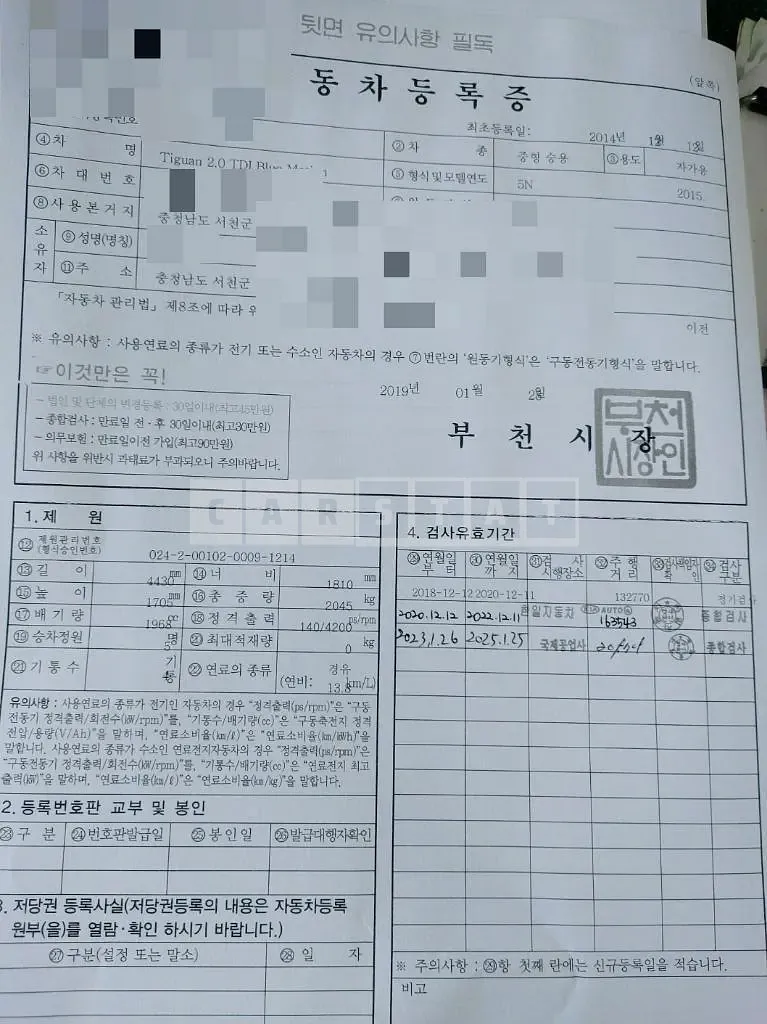 뒷면 유의사항 필독
동 차 등 록 증
(앞쪽)
최초등록일: 2014년
④ 차 명 Tiguan 2.0 TDI
② 차 종 중형 승용 ③ 용도 자가용
⑥ 차 대 번 호
⑤ 형식 및 모델연도 5N 2015
⑧ 사 용 본 거 지 충청남도 서천군
소유자
⑨ 성명(명칭)
⑪ 주 소 충청남도 서천군
「자동차 관리법」 제8조에 따라
이전
※ 유의사항 : 사용연료의 종류가 전기 또는 수소인 자동차의 경우 ⑦번란의 '원동기형식'은 '구동전동기형식'을 말합니다.
☞이것만은 꼭!
2019년 01월
- 법인 및 단체의 변경등록 : 30일이내(최고45만원)
- 종합검사 : 만료일 전·후 30일이내(최고30만원)
- 의무보험 : 만료일이전 가입(최고90만원)
위 사항을 위반시 과태료가 부과되오니 주의바랍니다.
부 천 시 장
부천
시장인
CARSTAT
1. 제 원
⑫ 제원관리번호
(형식승인번호) 024-2-00102-0009-1214
⑬ 길 이 4430 mm ⑭ 너 비 1810 mm
⑮ 높 이 1705 mm ⑯ 총 중 량 2045 kg
⑰ 배 기 량 1968 cc ⑱ 정 격 출 력 140/4200 ps/rpm
⑲ 승차정원 5 명 ⑳ 최대적재량 0 kg
㉑ 기 통 수 4 기통 ㉒ 연료의 종류 경유
(연비: 13.8 km/L)
유의사항 : 사용연료의 종류가 전기인 자동차의 경우 "정격출력(ps/rpm)"은 "구동
전동기 정격출력/회전수(kW/rpm)"를, "기통수/배기량(cc)"은 "구동축전지 정격
전압/용량(V/Ah)"을 말하며, "연료소비율(km/ℓ)"은 "연료소비율(km/kWh)"을
말합니다. 사용연료의 종류가 수소인 연료전지자동차의 경우 "정격출력(ps/rpm)"은
"구동전동기 정격출력/회전수(kW/rpm)"를, "기통수/배기량(cc)"은 "연료전지 최고
출력(kW)"을 말하며, "연료소비율(km/ℓ)"은 "연료소비율(km/kg)"을 말합니다.
2. 등록번호판 교부 및 봉인
㉓ 구 분 ㉔ 번호판발급일 ㉕ 봉 인 일 ㉖ 발급대행자확인
3. 저당권 등록사실(저당권등록의 내용은 자동차등록
원부(을)를 열람·확인 하시기 바랍니다.)
㉗ 구분(설정 또는 말소) ㉘ 일 자
4. 검사유효기간
㉙ 연월일부터 ㉚ 연월일까지 ㉛ 검 사 시행장소 ㉜ 주 행 거리 ㉞ 검사구분
2018-12-12 2020-12-11 132770 정기검사
2020.12.12 2022.12.11 한일자동차 AUTOQ 163543 종합검사
2023.1.26 2025.1.25 국제공업사 종합검사
※ 주의사항 : ㉙항 첫째 란에는 신규등록일을 적습니다.
비고